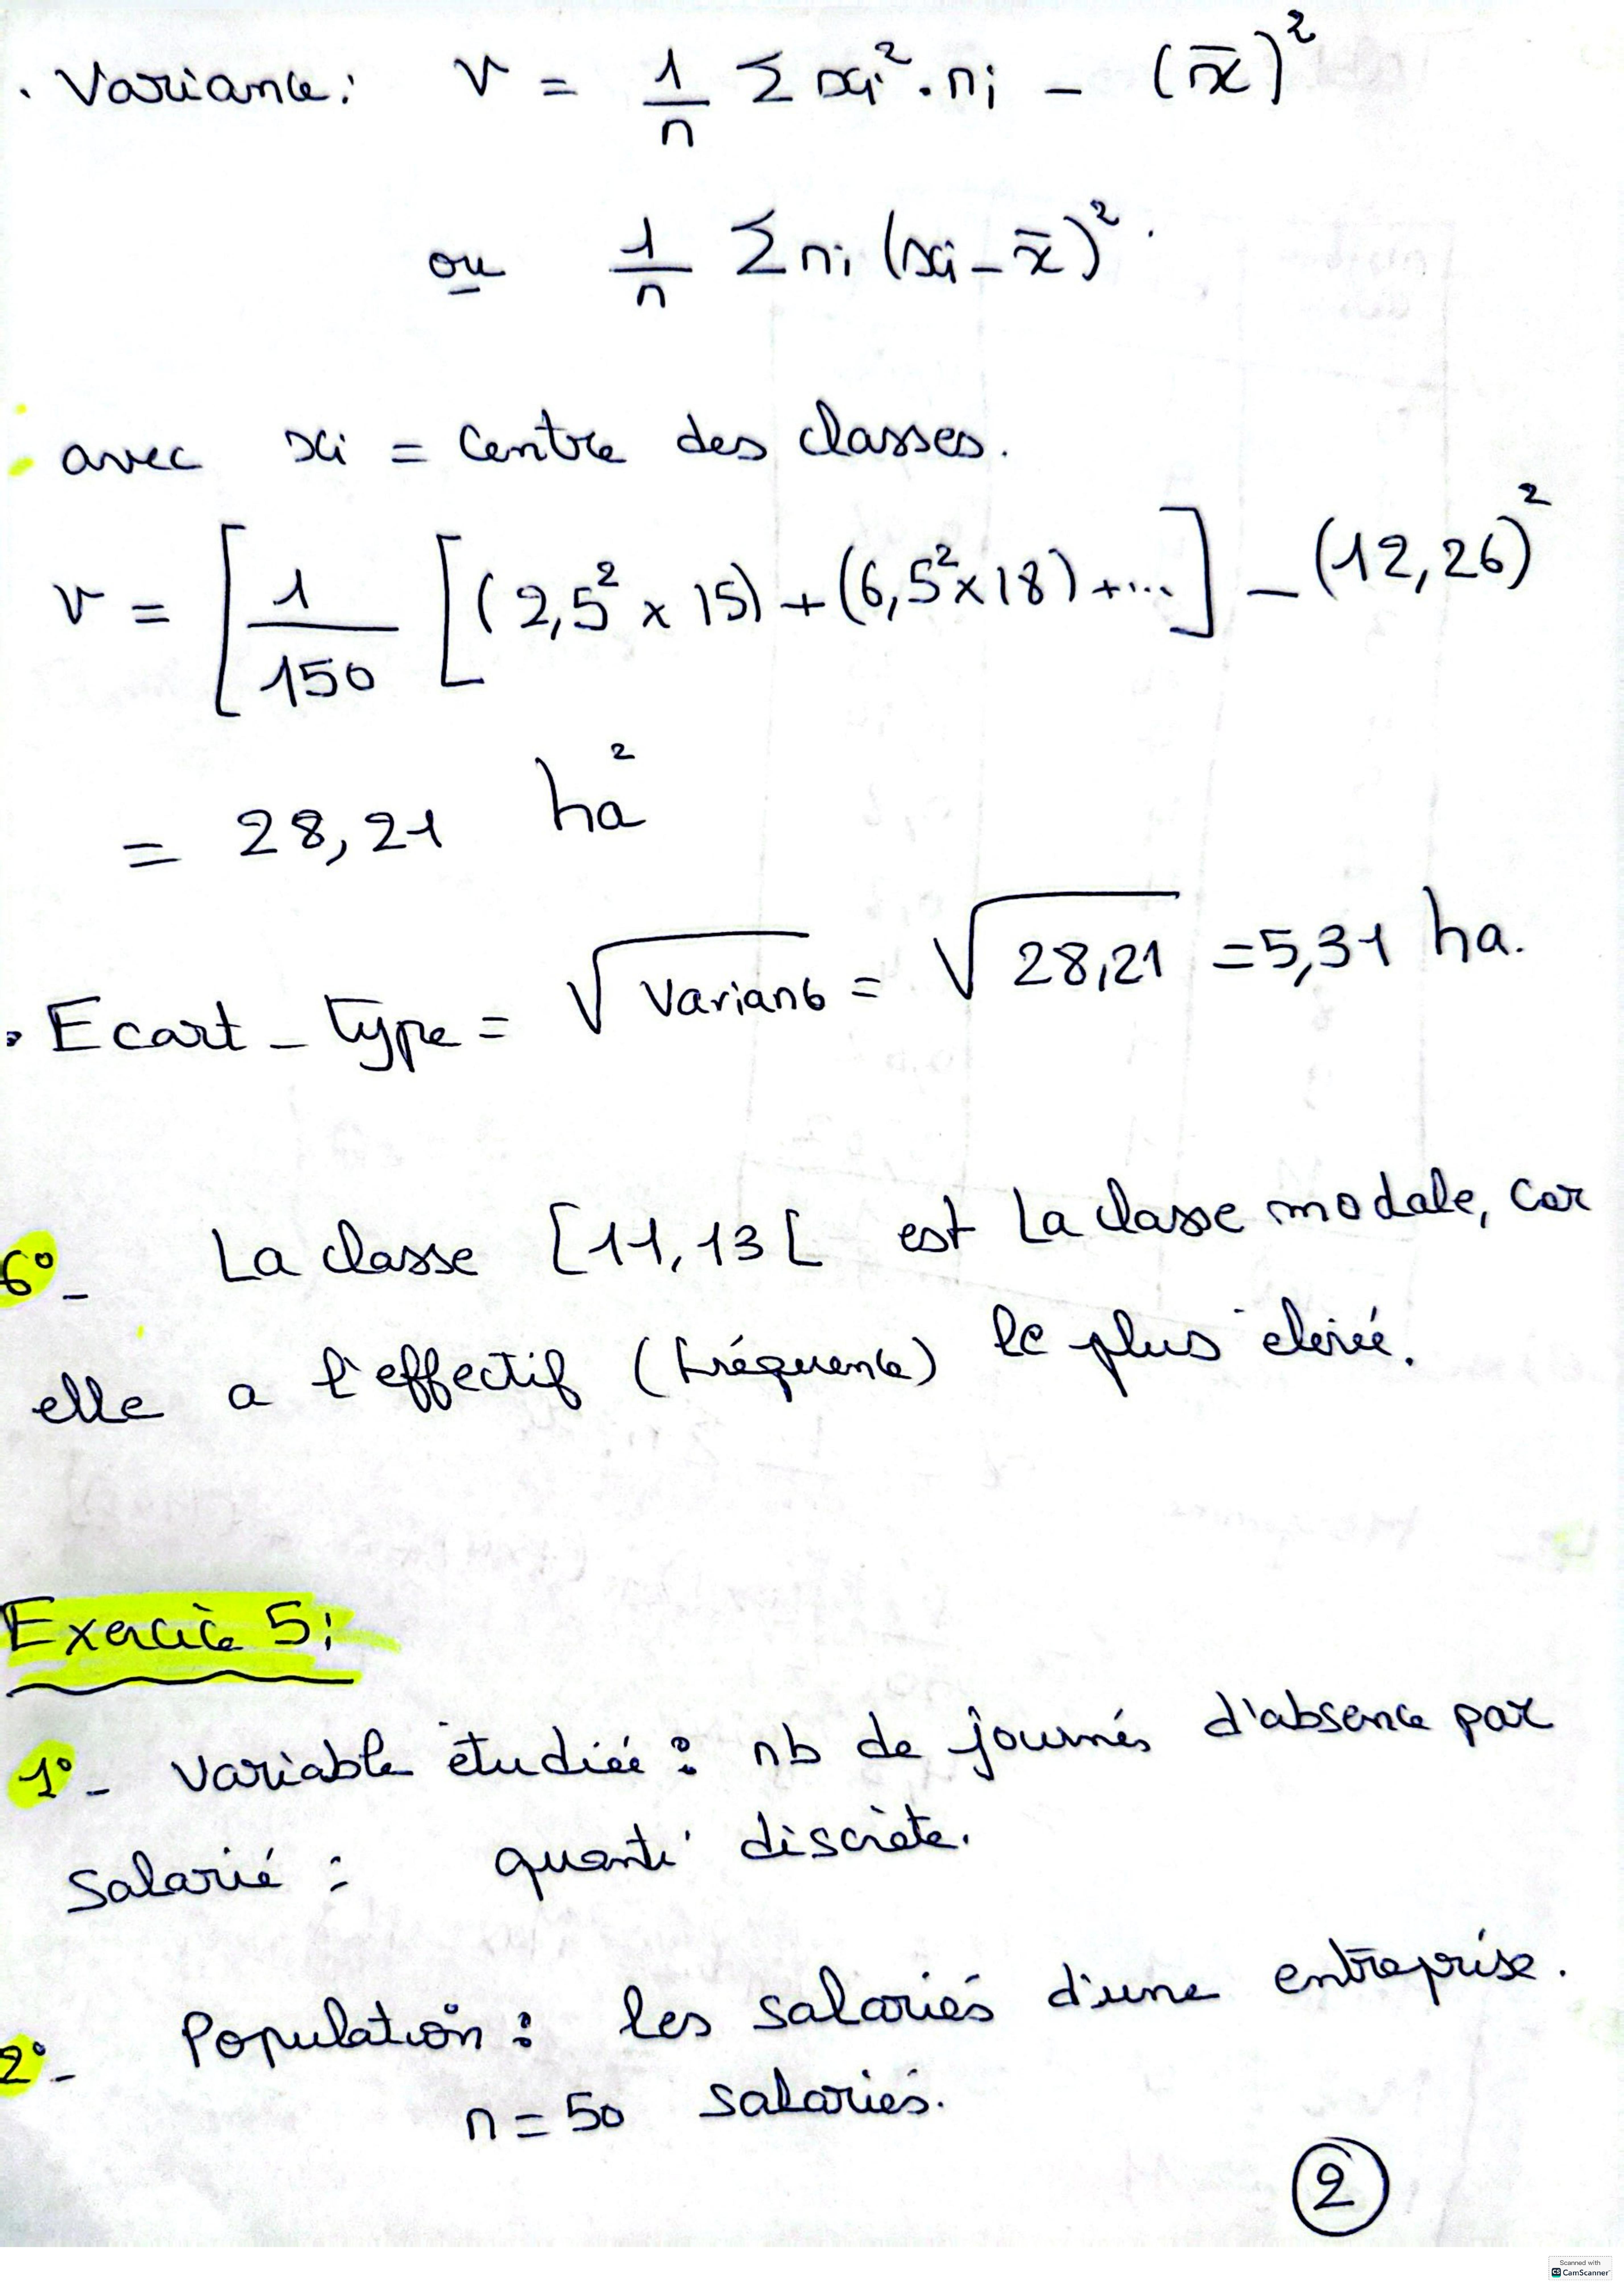 . Variance: V = 1/n Σ xi² . ni - (x̄)²
ou 1/n Σ ni (xi - x̄)² .
avec xi = Centre des classes.
V = [ 1/150 [ (2,5² x 15) + (6,5² x 18) + ... ] - (12,26)²
= 28,21 ha²
. Ecart - type = √Variance = √28,21 = 5,31 ha.
6° - La classe [11, 13[ est la classe modale, car
elle a l'effectif (fréquence) le plus élevé.
Exercice 5:
1° - Variable étudiée : nb de journés d'absence par
Salarié : quanti discrète.
2° - Population : les salariés d'une entreprise.
n = 50 salariés.
2
Scanned with
CS CamScanner